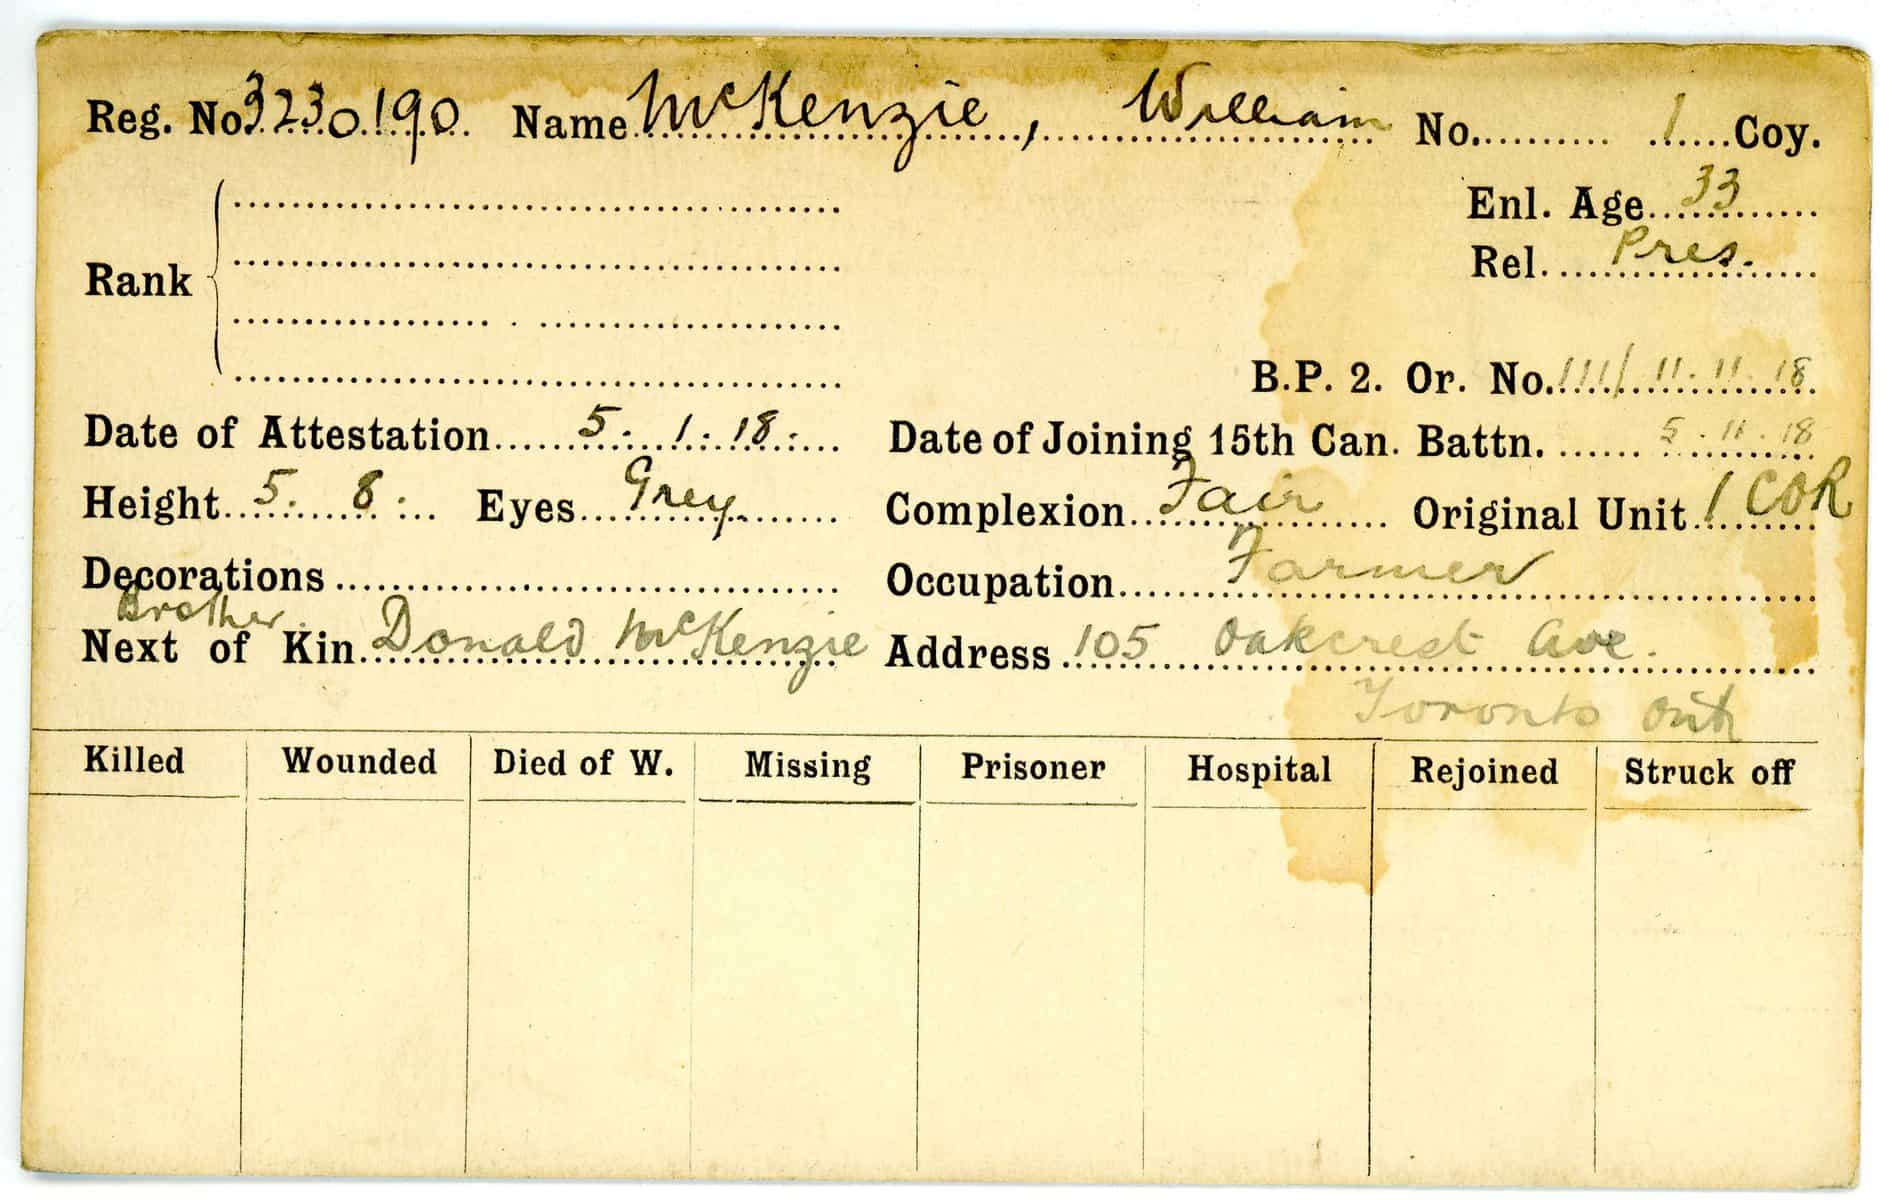 Reg. No. 3230190. Name McKenzie, William No. 1 Coy.
Enl. Age 33
Rel. Pres.
Rank
B.P. 2. Or. No. 111/ 11.11.18
Date of Attestation 5.1.18. Date of Joining 15th Can. Battn. 5.11.18
Height 5. 8. Eyes Grey. Complexion Fair Original Unit 1 COR
Decorations Occupation Farmer
Brother.
Next of Kin Donald McKenzie Address 105 Oakcrest Ave.
Toronto Ont
Killed Wounded Died of W. Missing Prisoner Hospital Rejoined Struck off